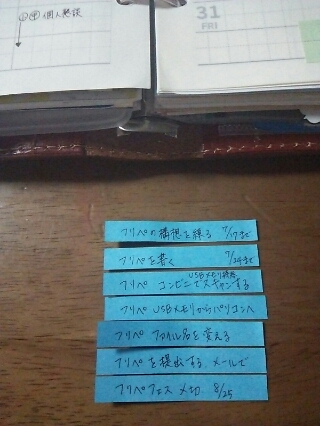 個人懇談
31
FRI
フリペの構想を練る 7/17まで
フリペを書く 7/24まで
USBメモリ持参
フリペ コンビニでスキャンする
フリペ USBメモリからパソコンへ
フリペ ファイル名を変える
フリペを提出する メールで
フリペフェス 〆切 8/25